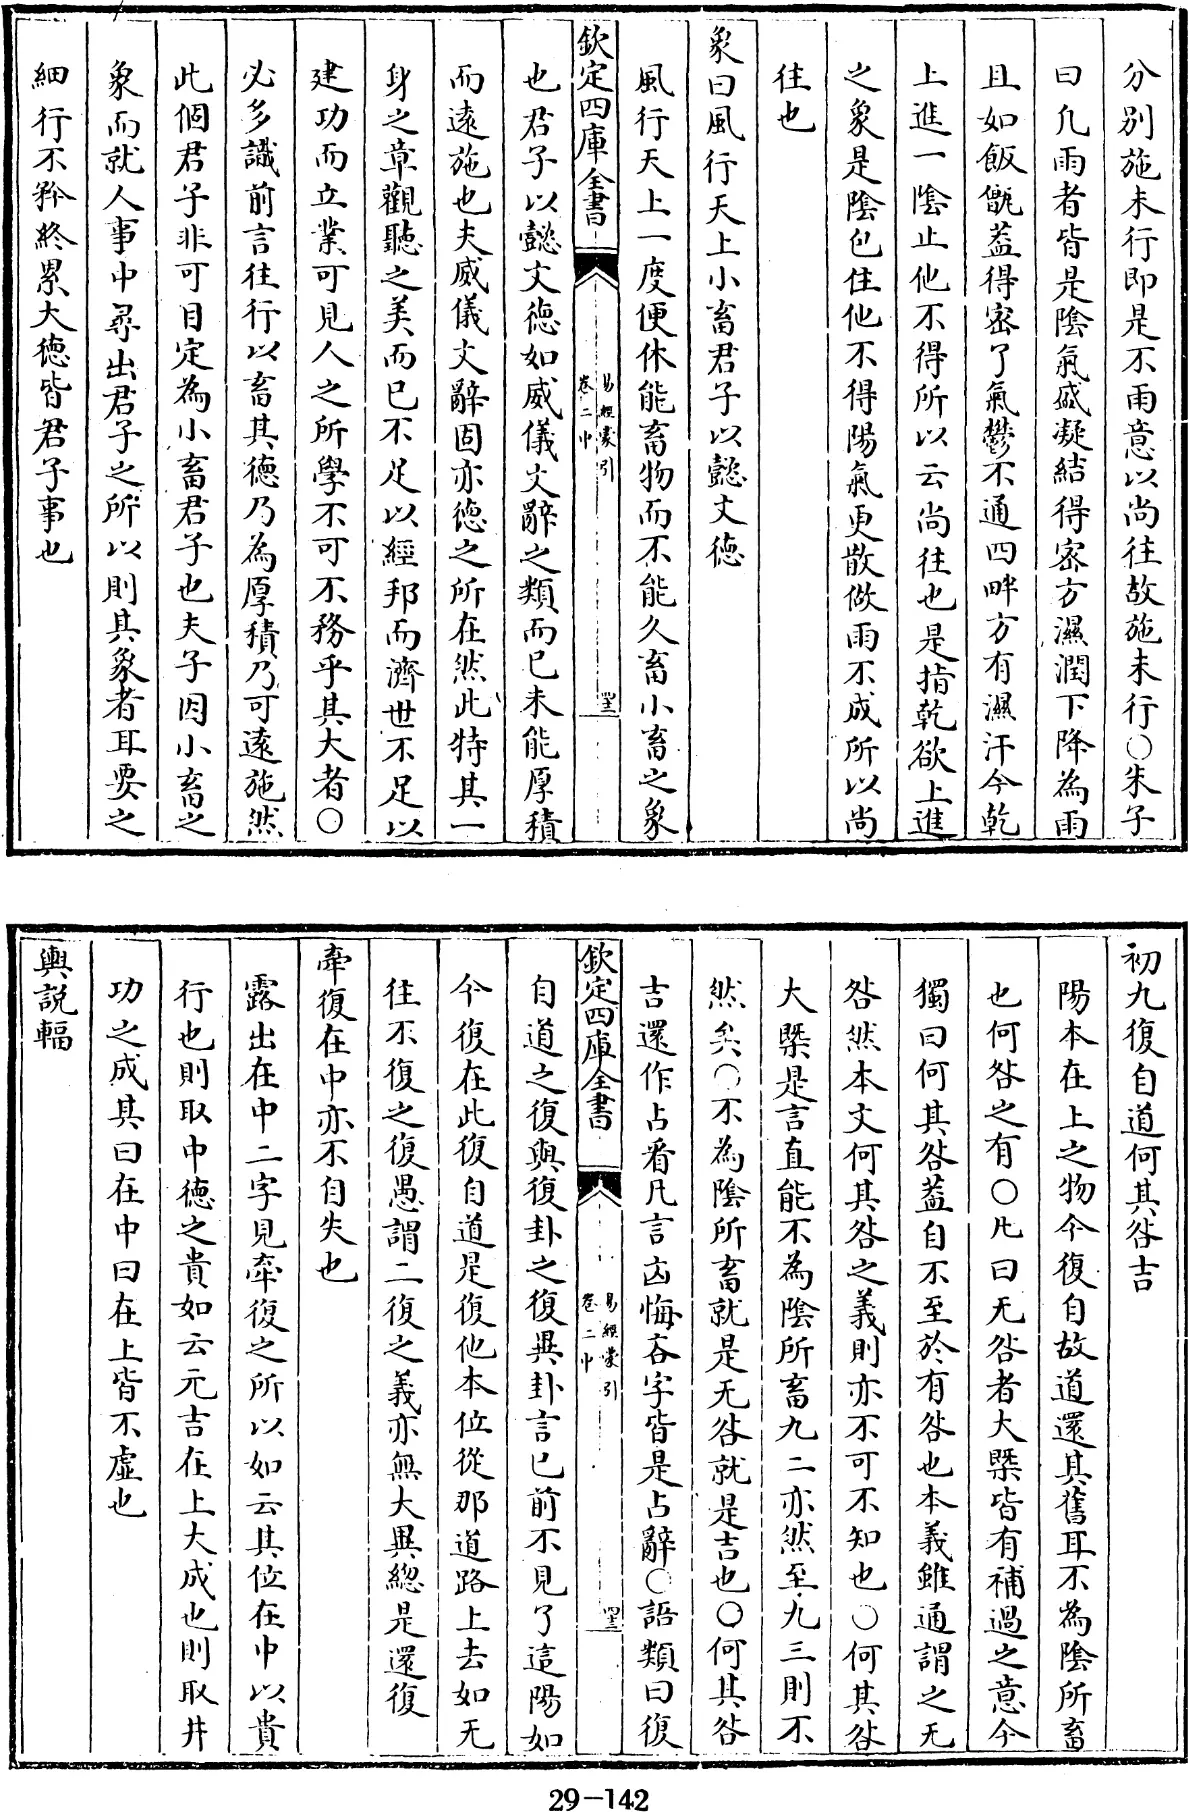 分别施未行即是不雨意以尚往故施未行〇朱子
曰凡雨者皆是陰氣盛凝結得宻方濕潤下降為雨
且如飯甑葢得宻了氣鬱不通四畔方有濕汗今乾
上進一陰止他不得所以云尚往也是指乾欲上進
之象是陰包住他不得陽氣更散做雨不成所以尚
往也
象曰風行天上小畜君子以懿文徳
風行天上一度便休能畜物而不能久畜小畜之象
欽定四庫全書
易經蒙引
卷二中
也君子以懿文徳如威儀文辭之類而已未能厚積
而逺施也夫威儀文辭固亦徳之所在然此特其一
身之章觀聽之美而已不足以經邦而濟世不足以
建功而立業可見人之所學不可不務乎其大者〇
必多識前言往行以畜其徳乃為厚積乃可逺施然
此個君子非可目定為小畜君子也夫子因小畜之
象而就人事中尋出君子之所以則其象者耳要之
細行不矜終累大徳皆君子事也
初九復自道何其咎吉
陽本在上之物今復自故道還其舊耳不為陰所畜
也何咎之有〇凡曰无咎者大槩皆有補過之意今
獨曰何其咎葢自不至於有咎也本義雖通謂之无
咎然本文何其咎之義則亦不可不知也〇何其咎
大槩是言直能不為陰所畜九二亦然至九三則不
然矣〇不為陰所畜就是无咎就是吉也〇何其咎
吉還作占看凡言凶悔吝字皆是占辭〇語類曰復
欽定四庫全書
易經蒙引
卷二中
自道之復與復卦之復異卦言已前不見了這陽如
今復在此復自道是復他本位從那道路上去如无
往不復之復愚謂二復之義亦無大異總是還復
牽復在中亦不自失也
露出在中二字見牽復之所以如云其位在中以貴
行也則取中徳之貴如云元吉在上大成也則取井
功之成其曰在中曰在上皆不虚也
輿說輻
29-142